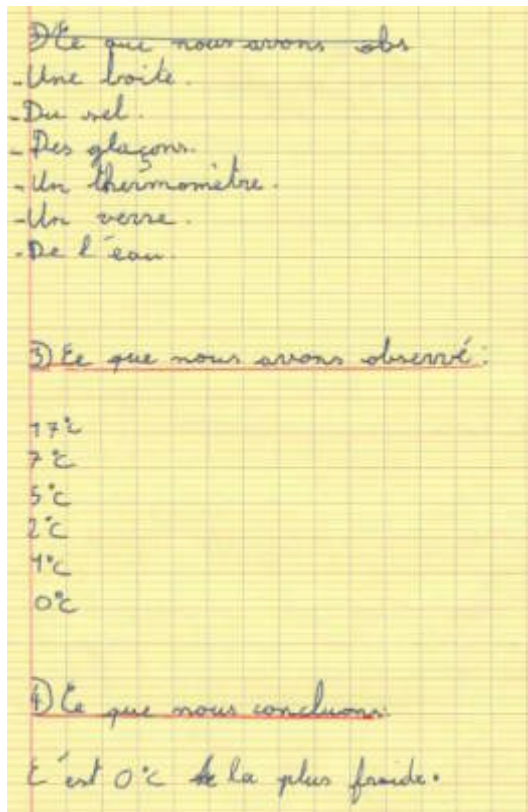 2) Ce que nous avons obs
- Une boite.
- Du sel.
- Des glaçons.
- Un thermomètre.
- Un verre.
- De l'eau.
3) Ce que nous avons observé :
17°C
7°C
5°C
2°C
1°C
0°C
4) Ce que nous concluons:
C'est 0°C la plus froide.